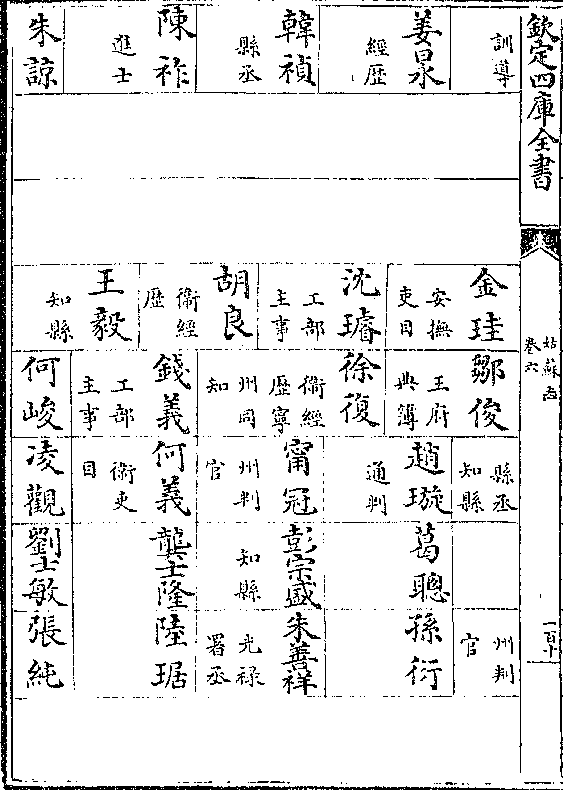 欽定四庫全書
姑蘇志
卷六
一百十
訓導
姜
經歴
韓禎
縣丞
陳祚
進士
朱諒
金珪
安撫
吏目
沈璿
工部
主事
胡良
衛經
歴
王毅
知縣
鄒俊
王府
典簿
徐復
衛經
歴寧
州同
知
錢義
工部
主事
何峻
縣丞
知縣
趙璇
通判
甯冠
州判
官
何義
衛吏
目
凌觀
葛聰
彭宗盛
知縣
龔士隆
劉士敏
州判
官
孫衍
朱善祥
光禄
署丞
陸琚
張純